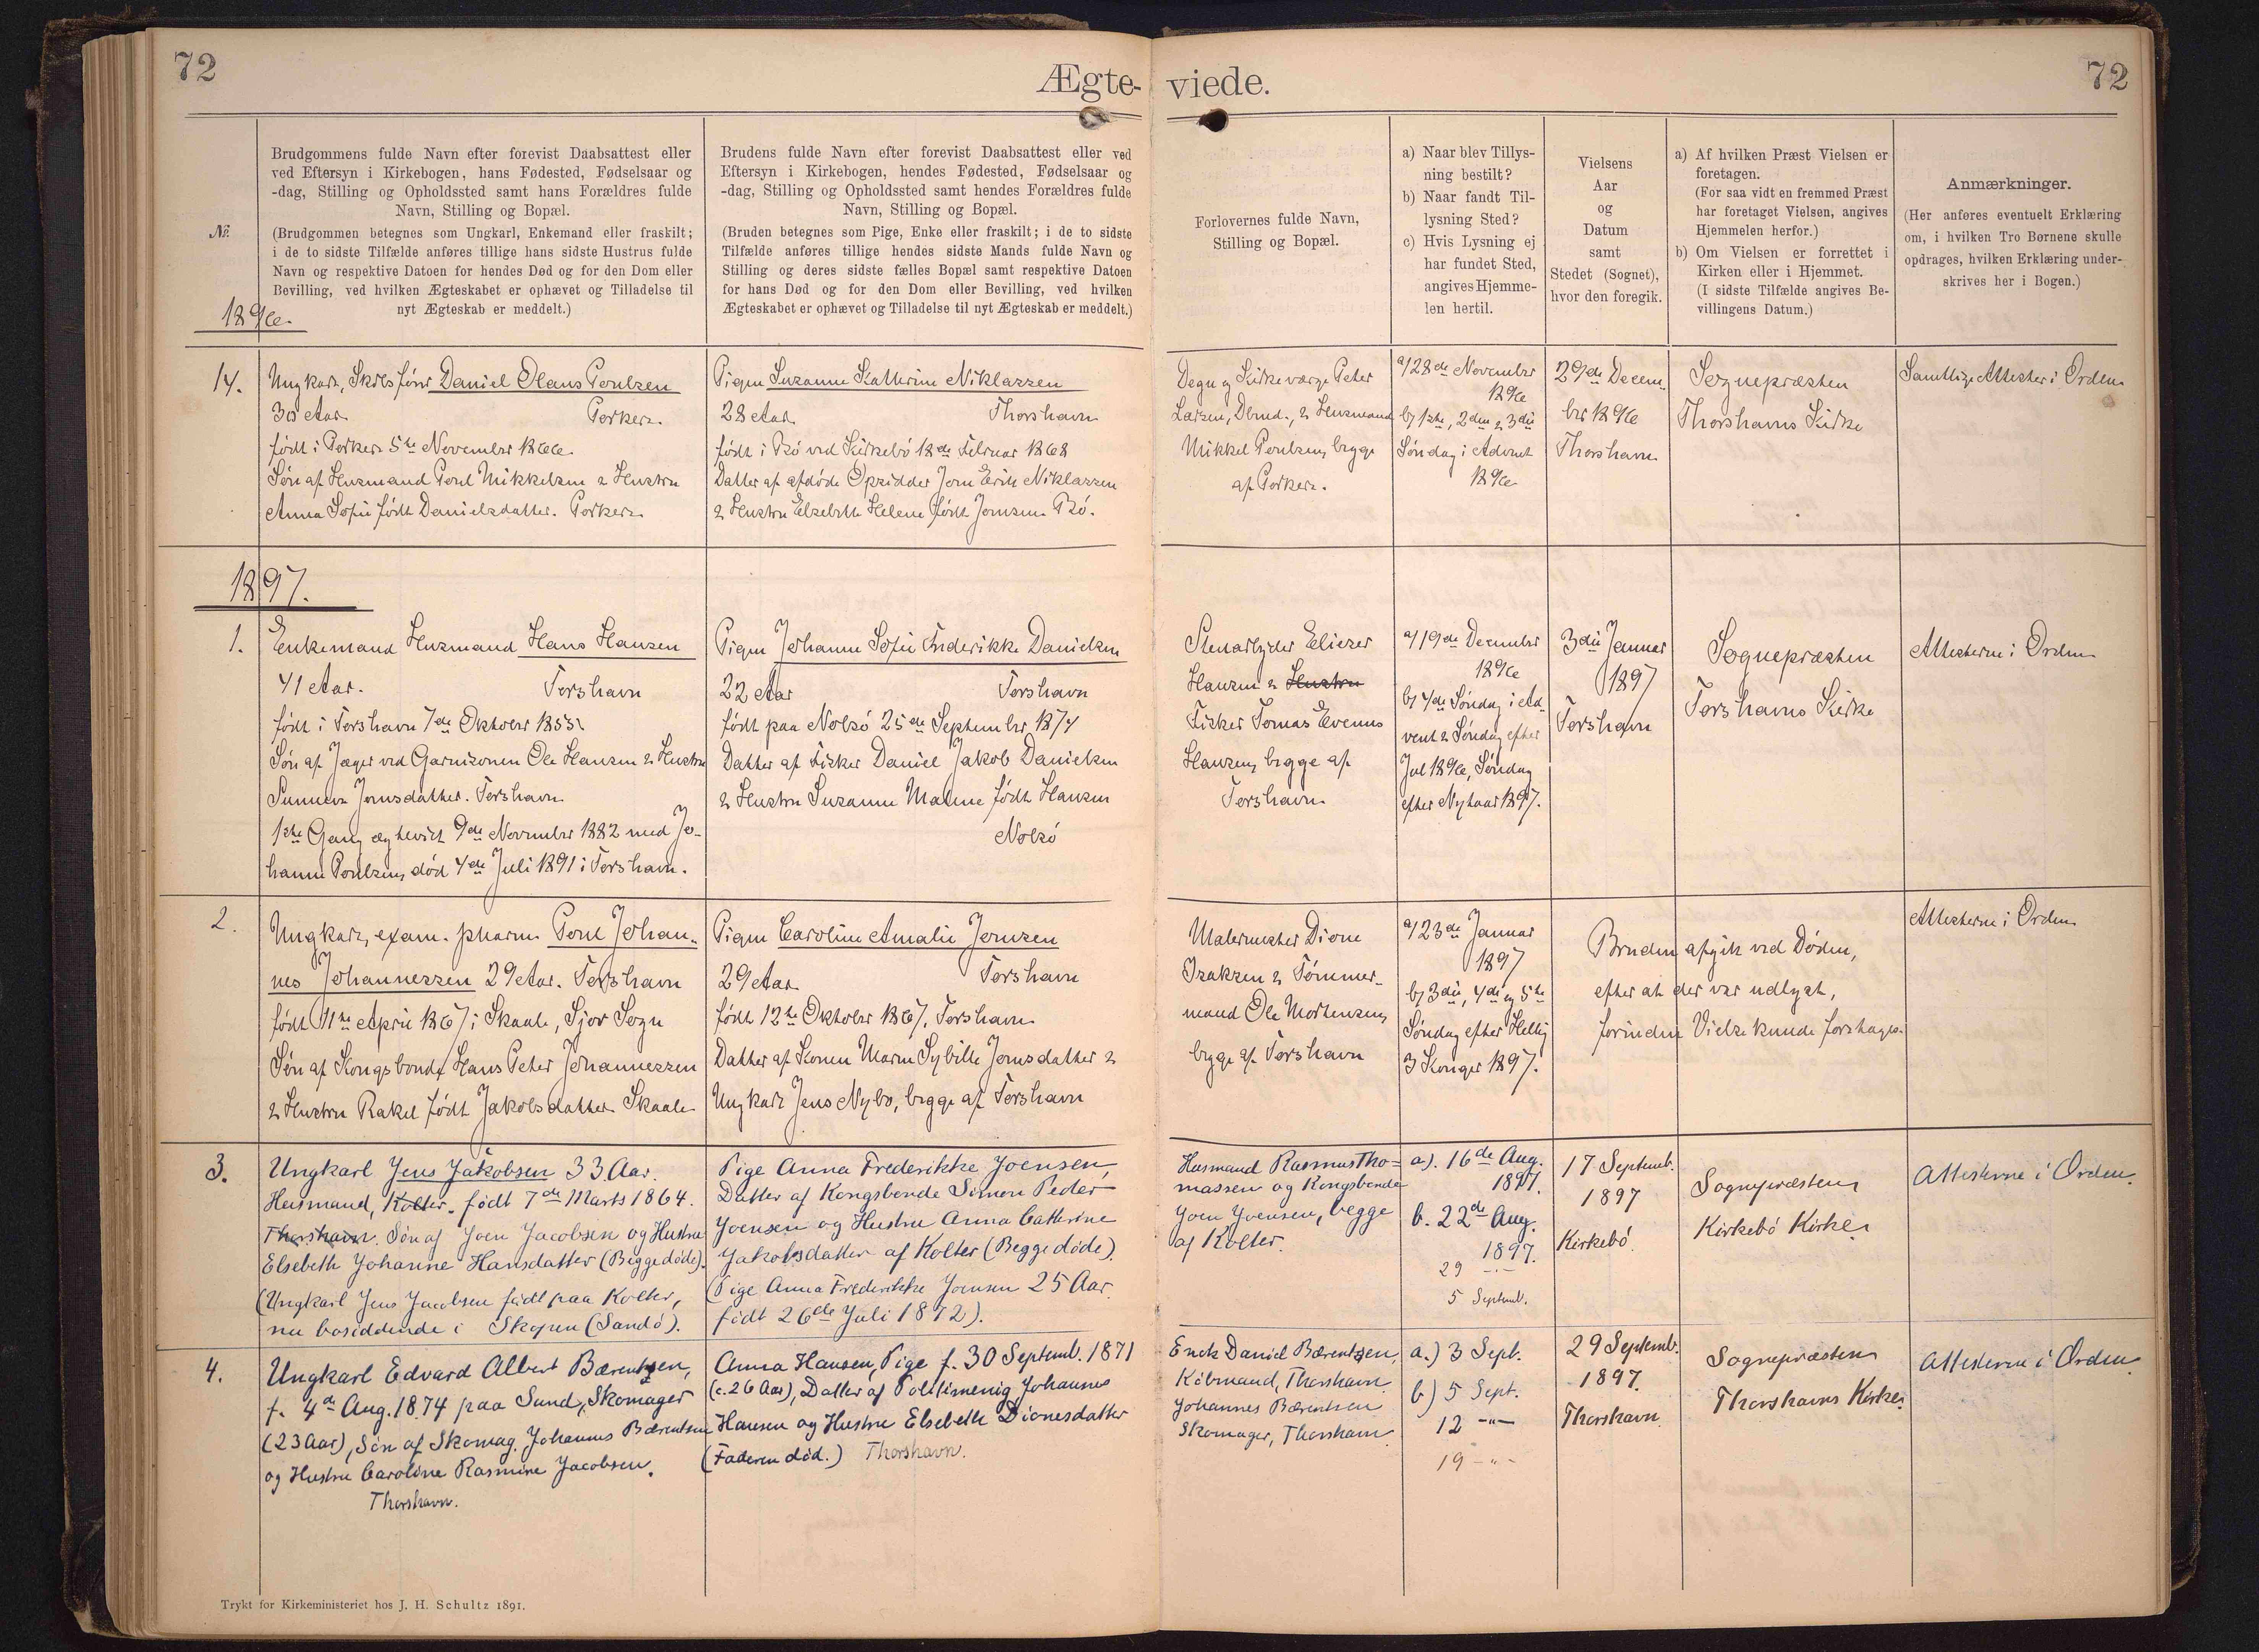 72
Ægte-
viede.
72
Brudgommens fulde Navn efter forevist Daabsattest eller
ved Eftersyn i Kirkebogen, hans Fødested, Fødselsaar og
-dag, Stilling og Opholdssted samt hans Forældres fulde
Navn, Stilling og Bopæl.
(Brudgommen betegnes som Ungkarl, Enkemand eller fraskilt;
i de to sidste Tilfælde anføres tillige hans sidste Hustrus fulde
Navn og respektive Datoen for hendes Død og for den Dom eller
Bevilling, ved hvilken Ægteskabet er ophævet og Tilladelse til
nyt Ægteskab er meddelt.)
Brudens fulde Navn efter forevist Daabsattest eller ved
Eftersyn i Kirkebogen, hendes Fødested, Fødselsaar og
-dag, Stilling og Opholdssted samt hendes Forældres fulde
Navn, Stilling og Bopæl.
(Bruden betegnes som Pige, Enke eller fraskilt; i de to sidste
Tilfælde anføres tillige hendes sidste Mands fulde Navn og
Stilling og deres sidste fælles Bopæl samt respektive Datoen
for hans Død og for den Dom eller Bevilling, ved hvilken
Ægteskabet er ophævet og Tilladelse til nyt Ægteskab er meddelt.)
Forlovernes fulde Navn,
Stilling og Bopæl.
a) Naar blev Tillys-
ning bestilt?
b) Naar fandt Til-
lysning Sted?
c) Hvis Lysning ej
har fundet Sted,
angives Hjemme-
len hertil.
Vielsens
Aar
og
Datum
samt
Stedet (Sognet),
hvor den foregik.
a) Af hvilken Præst Vielsen er
foretagen.
(For saa vidt en fremmed Præst
har foretaget Vielsen, angives
Hjemmelen herfor.)
b) Om Vielsen er forrettet i
Kirken eller i Hjemmet.
(I sidste Tilfælde angives Be-
villingens Datum.)
Anmærkninger.
(Her anføres eventuelt Erklæring
om, i hvilken Tro Børnene skulle
opdrages, hvilken Erklæring under-
skrives her i Bogen.)
№
1896.
14.
Ungkarl, Daniel Olaus Poulsen
30 Aar Porkere
født i Porkere 5te November 1866
Søn af Husmand Poul Mikkelsen & Hustru
Anna Sofie født Danielsdatter. Porkere
Pigen Susanne Katherine Niklassen
28 Aar Thorshavn
født i Bø ved Kirkebø 18de Februar 1868
Datter af afdøde Opsidder Joen Erik Niklassen
& Hustru Elsebeth Helene født Joensen Bø.
Degn og Kirkeværge Peter
Larsen, Dbmd., & Husmand
Mikkel Poulsen, begge
af Porkere.
a/ 28de November
1896
b/ 1ste, 2den & 3die
Søndag i Advent
1896
29de Decem-
ber 1896
Thorshavn
Sognepræsten
Thorshavns Kirke
Samtlige Attester i Orden
1897.
1.
Enkemand Husmand Hans Hansen
41 Aar. Torshavn
født i Torshavn 7de Oktober 1855
Søn af Jæger ved Garnisonen Ole Hansen & Hustru
Sunneva Joensdatter. Torshavn
1ste Gang ægteviet 9de November 1882 med Jo-
hanne Poulsen, død 4de Juli 1891 i Torshavn.
Pigen Johanne Sofie Frederikke Danielsen
22 Aar Torshavn
født paa Nolsø 25de September 1874
Datter af Fisker Daniel Jakob Danielsen
& Hustru Susanne Malene født Hansen
Nolsø
Stenarbejder Eliezer
Hansen & Hustru
Fisker Tomas Evenus
Hansen, begge af
Torshavn
a/ 19de December
1896
b/ 4de Søndag i Ad-
vent & Søndag efter
Jul 1896, Søndag
efter Nytaar 1897.
3die Januar
1897
Torshavn
Sognepræsten
Torshavns Kirke
Attesterne i Orden
2.
Ungkarl, exam. pharm. Poul Johan-
nes Johannessen 29 Aar. Torshavn
født 11te April 1867 i Skaale, Sjov Sogn
Søn af Kongsbonde Hans Peter Johannessen
& Hustru Rakel født Jakobsdatter Skaale
Pigen Caroline Amalie Joensen
29 Aar Torshavn
født 12te Oktober 1867, Torshavn
Datter af Konen Maren Sybille Joensdatter &
Ungkarl Jens Nybo, begge af Torshavn
Malermester Dione
Isaksen & Tømmer-
mand Ole Mortensen,
begge af Torshavn
a/ 23de Januar
1897
b/ 3die, 4de og 5te
Søndag efter Hellig
3 Konger 1897.
Bruden afgik ved Døden,
efter at der var udlyst,
forinden Vielse kunde foretages.
Attesterne i Orden
3.
Ungkarl Jens Jakobsen 33 Aar.
Husmand, Kolter. født 7de Marts 1864.
Thorshavn. Søn af Joen Jacobsen og Hustru
Elsebeth Johanne Hansdatter (Begge døde).
(Ungkarl Jens Jacobsen født paa Kolter,
nu bosiddende i Skopen (Sandø).
Pige Anna Frederikke Joensen,
Datter af Kongsbonde Simon Peder
Joensen og Hustru Anna Cathrine
Jakobsdatter af Kolter (Begge døde).
(Pige Anna Frederikke Joensen 25 Aar.
født 26de Juli 1872).
Husmand Rasmus Tho-
massen og Kongsbonde
Joen Joensen, begge
af Kolter.
a). 16de Aug.
1897.
b. 22de Aug.
1897.
29 -"-
5 Septemb.
17 Septemb.
1897
Kirkebó.
Sognepræsten
Kirkebó Kirke
Attesterne i Orden.
4.
Ungkarl Edvard Albert Bærentsen,
f. 4de Aug. 1874 paa Sund, Skomager
(23 Aar), Søn af Skomag. Johannes Bærentsen
og Hustru Caroline Rasmine Jacobsen.
Thorshavn.
Anna Hansen, Pige f. 30 Septemb. 1871
(c. 26 Aar), Datter af Politimenig Johannes
Hansen og Hustru Elsebeth Dionesdatter
(Faderen død.) Thorshavn.
Enok Daniel Bærentsen,
Købmand, Thorshavn.
Johannes Bærentsen
Skomager, Thorshavn.
a.) 3 Sept.
b) 5 Sept.
12 -"-
19 -"-
29 Septemb.
1897.
Thorshavn.
Sognepræsten
Thorshavns Kirke
Attesterne i Orden.
Trykt for Kirkeministeriet hos J. H. Schultz 1891.